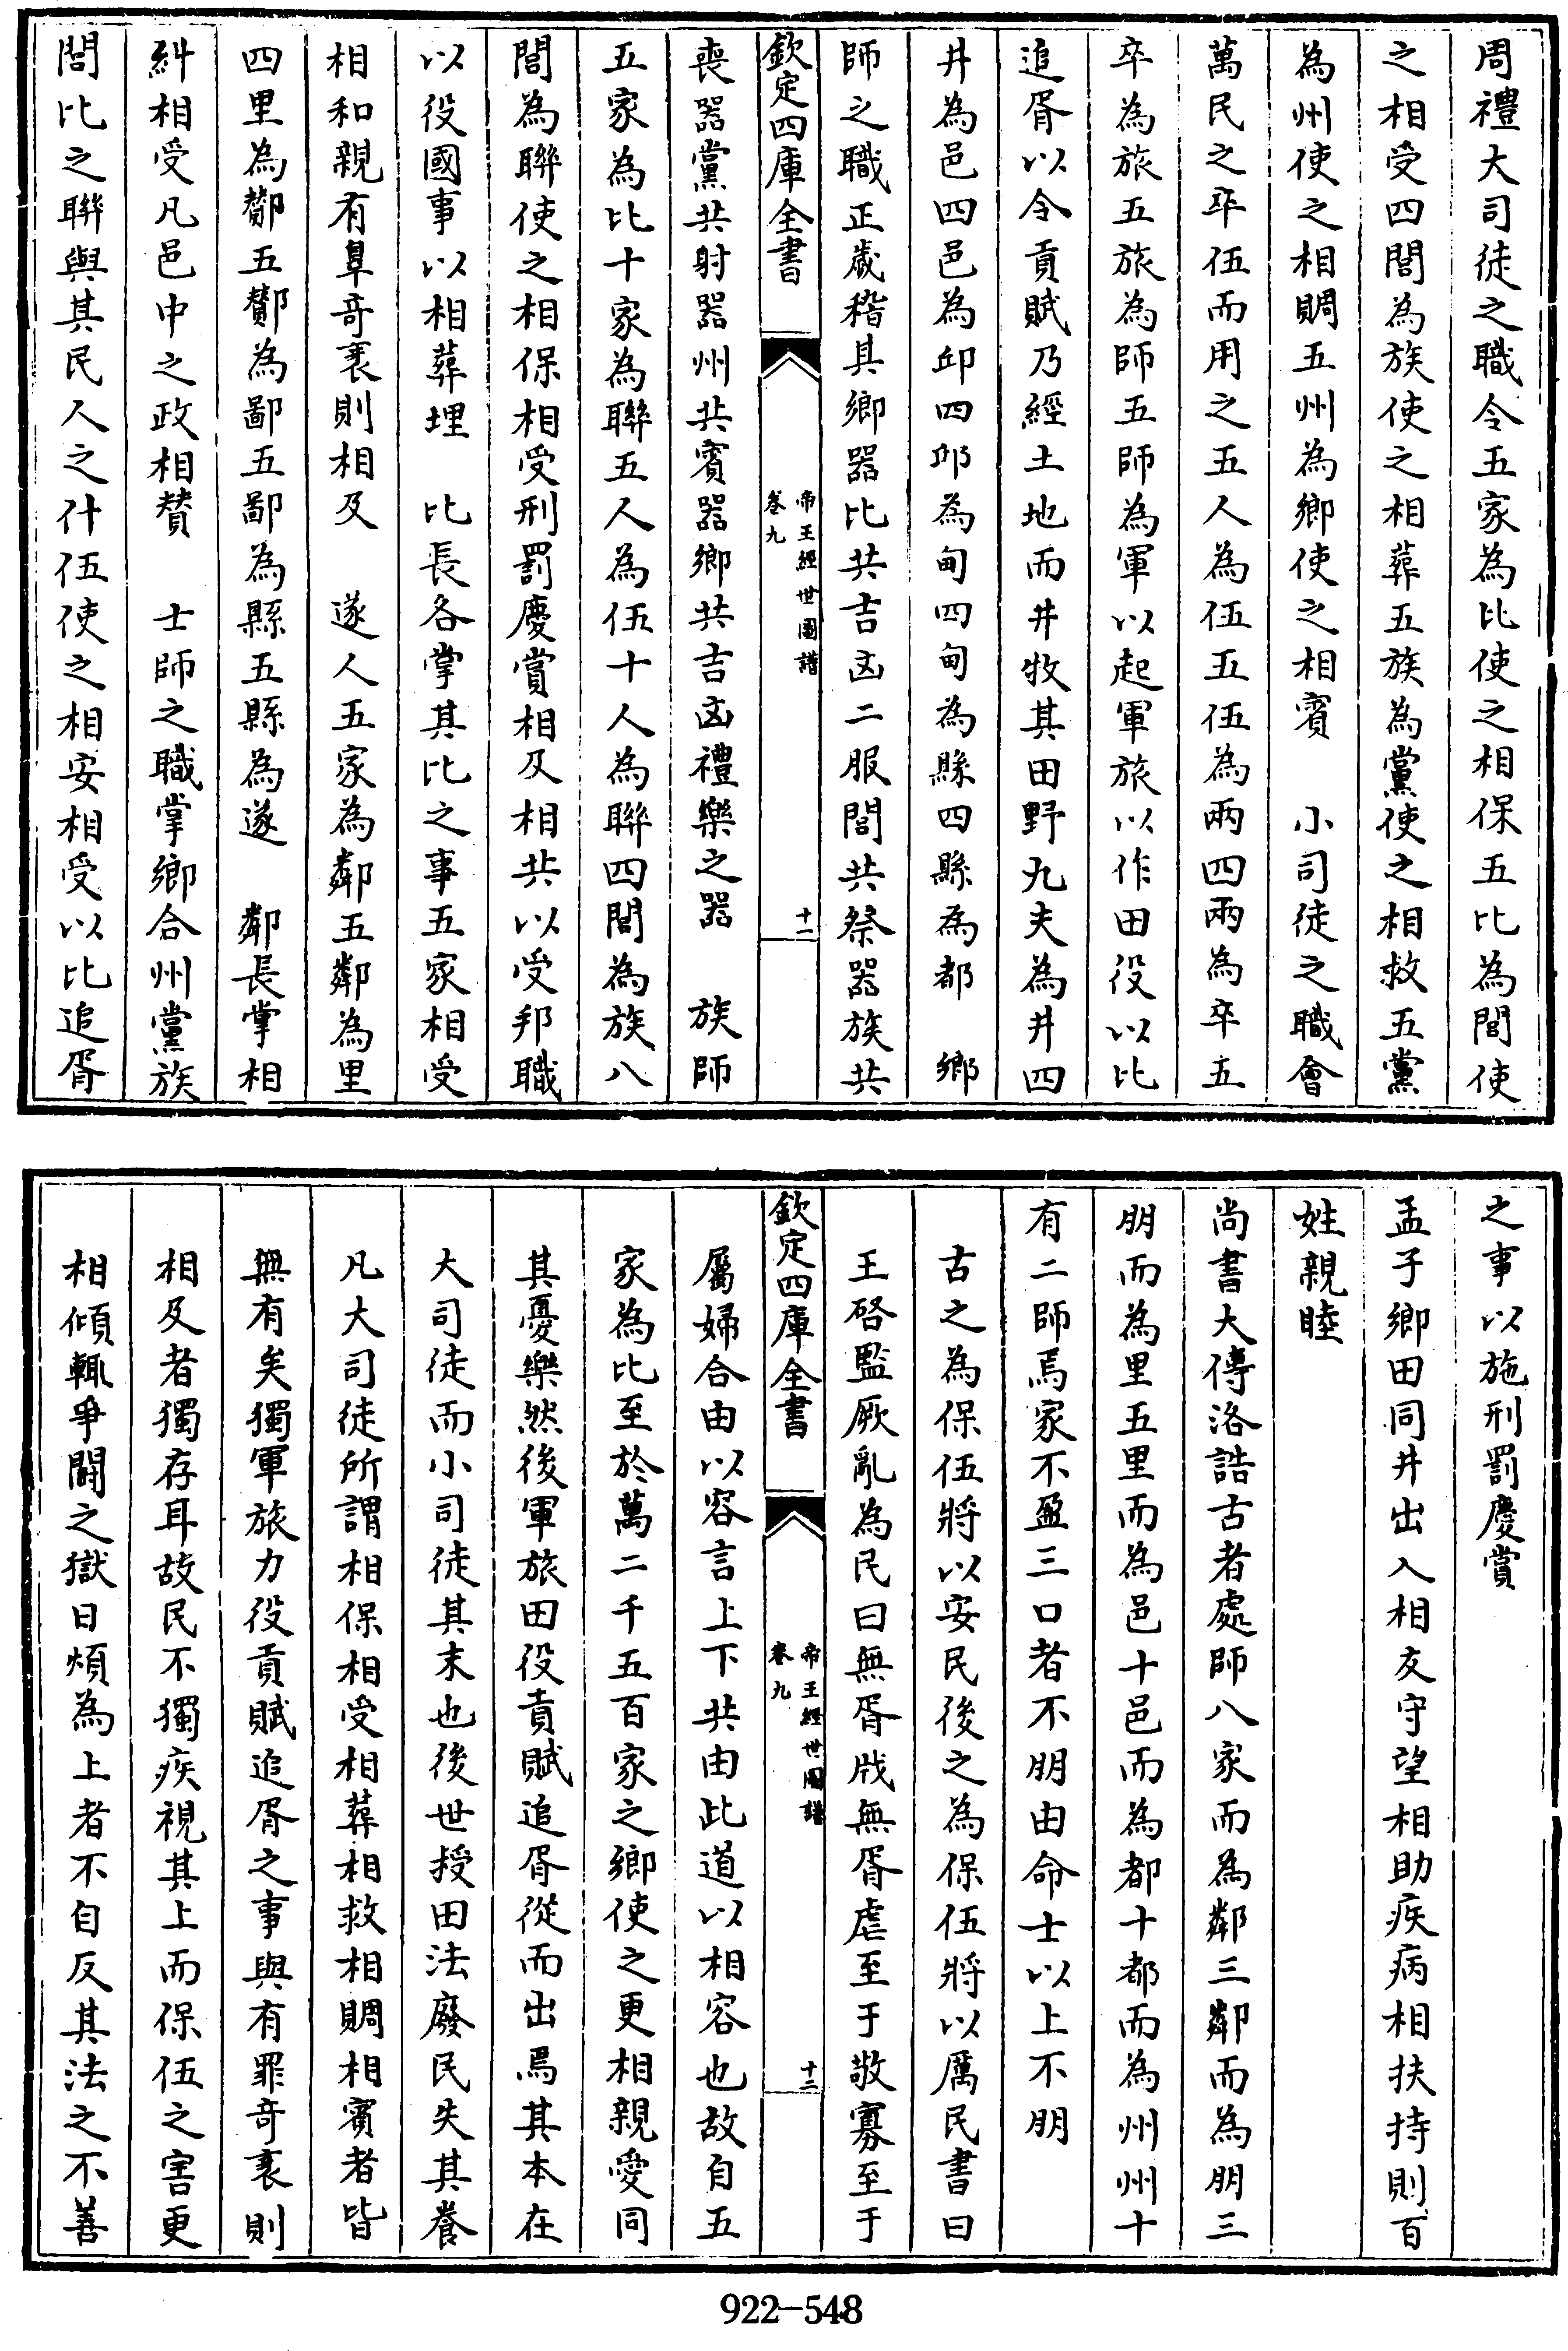 周禮大司徒之職令五家為比使之相保五比為閭使
之相受四閭為族使之相葬五族為黨使之相救五黨
為州使之相賙五州為鄉使之相賓　小司徒之職會
萬民之卒伍而用之五人為伍五伍為兩四兩為卒五
卒為旅五旅為師五師為軍以起軍旅以作田役以比
追胥以令貢賦乃經土地而井牧其田野九夫為井四
井為邑四邑為邱四邱為甸四甸為縣四縣為都　鄉
師之職正歲稽其鄉器比共吉凶二服閭共祭器族共
欽定四庫全書
帝王經世圖譜
卷九
十一
喪器黨共射器州共賓器鄉共吉凶禮樂之器　族師
五家為比十家為聯五人為伍十人為聯四閭為族八
閭為聯使之相保相受刑罰慶賞相及相共以受邦職
以役國事以相葬埋　比長各掌其比之事五家相受
相和親有辠奇衺則相及　遂人五家為鄰五鄰為里
四里為酇五酇為鄙五鄙為縣五縣為遂　鄰長掌相
糾相受凡邑中之政相贊　士師之職掌鄉合州黨族
閭比之聯與其民人之什伍使之相安相受以比追胥
之事以施刑罰慶賞
孟子鄉田同井出入相友守望相助疾病相扶持則百
姓親睦
尚書大傳洛誥古者處師八家而為鄰三鄰而為朋三
朋而為里五里而為邑十邑而為都十都而為州州十
有二師焉家不盈三口者不朋由命士以上不朋
古之為保伍將以安民後之為保伍將以厲民書曰
王啓監厥亂為民曰無胥戕無胥虐至于敬寡至于
欽定四庫全書
帝王經世圖譜
卷九
十二
屬婦合由以容言上下共由此道以相容也故自五
家為比至於萬二千五百家之鄉使之更相親愛同
其憂樂然後軍旅田役責賦追胥從而出焉其本在
大司徒而小司徒其末也後世授田法廢民失其養
凡大司徒所謂相保相受相葬相救相賙相賓者皆
無有矣獨軍旅力役貢賦追胥之事與有罪奇衺則
相及者獨存耳故民不獨疾視其上而保伍之害更
相傾輒爭鬭之獄日煩為上者不自反其法之不善
922-548